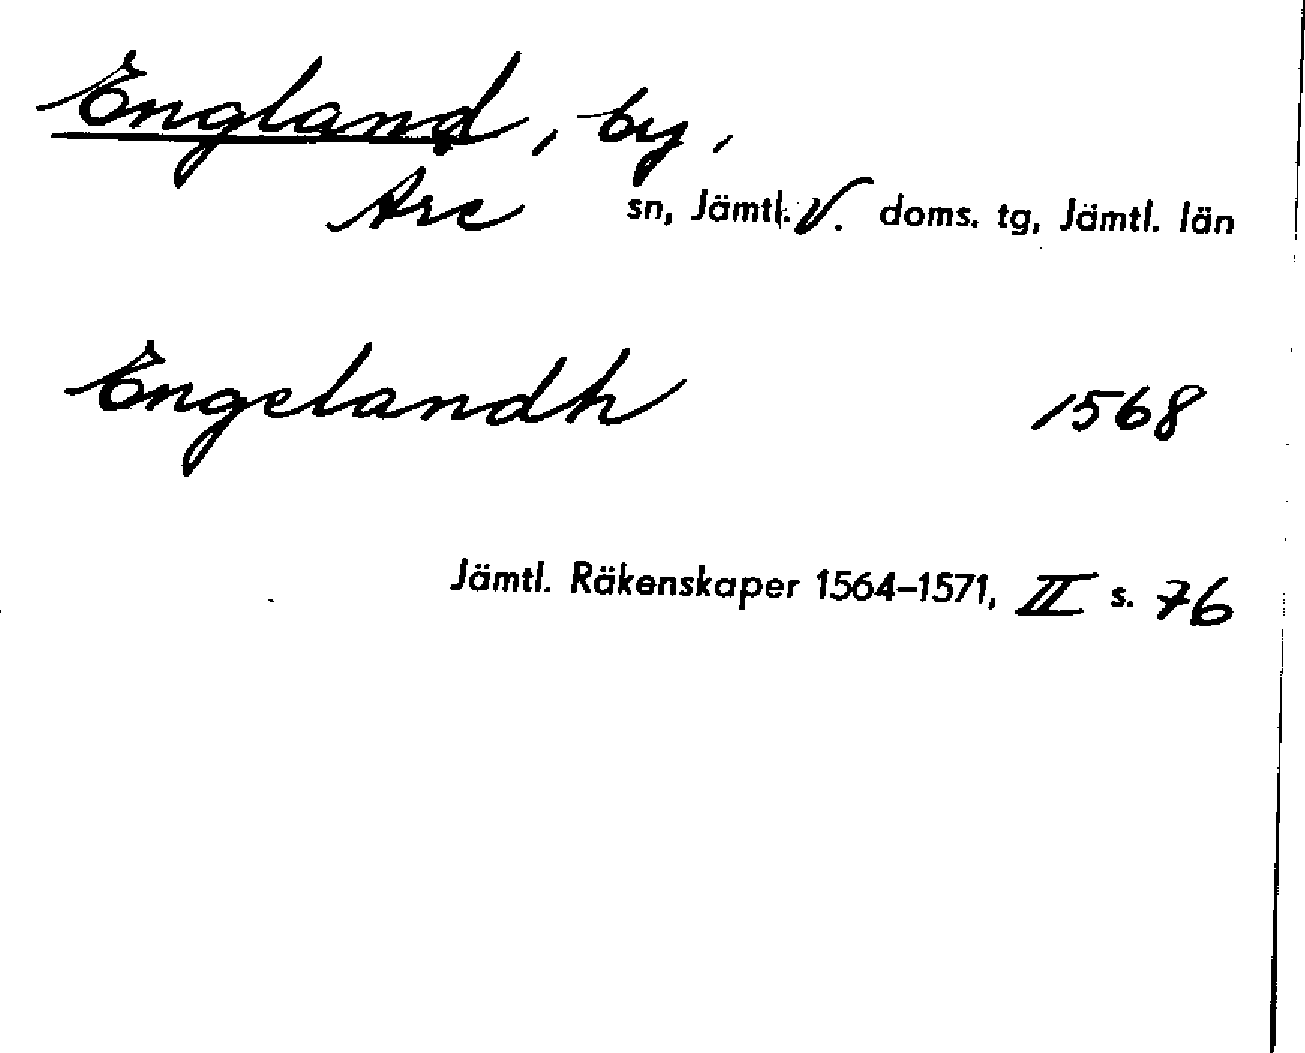 England, by,
Åre sn, Jämtl. V. doms. tg, Jämtl. län
Engelandh 1568
Jämtl. Räkenskaper 1564–1571, II s. 76